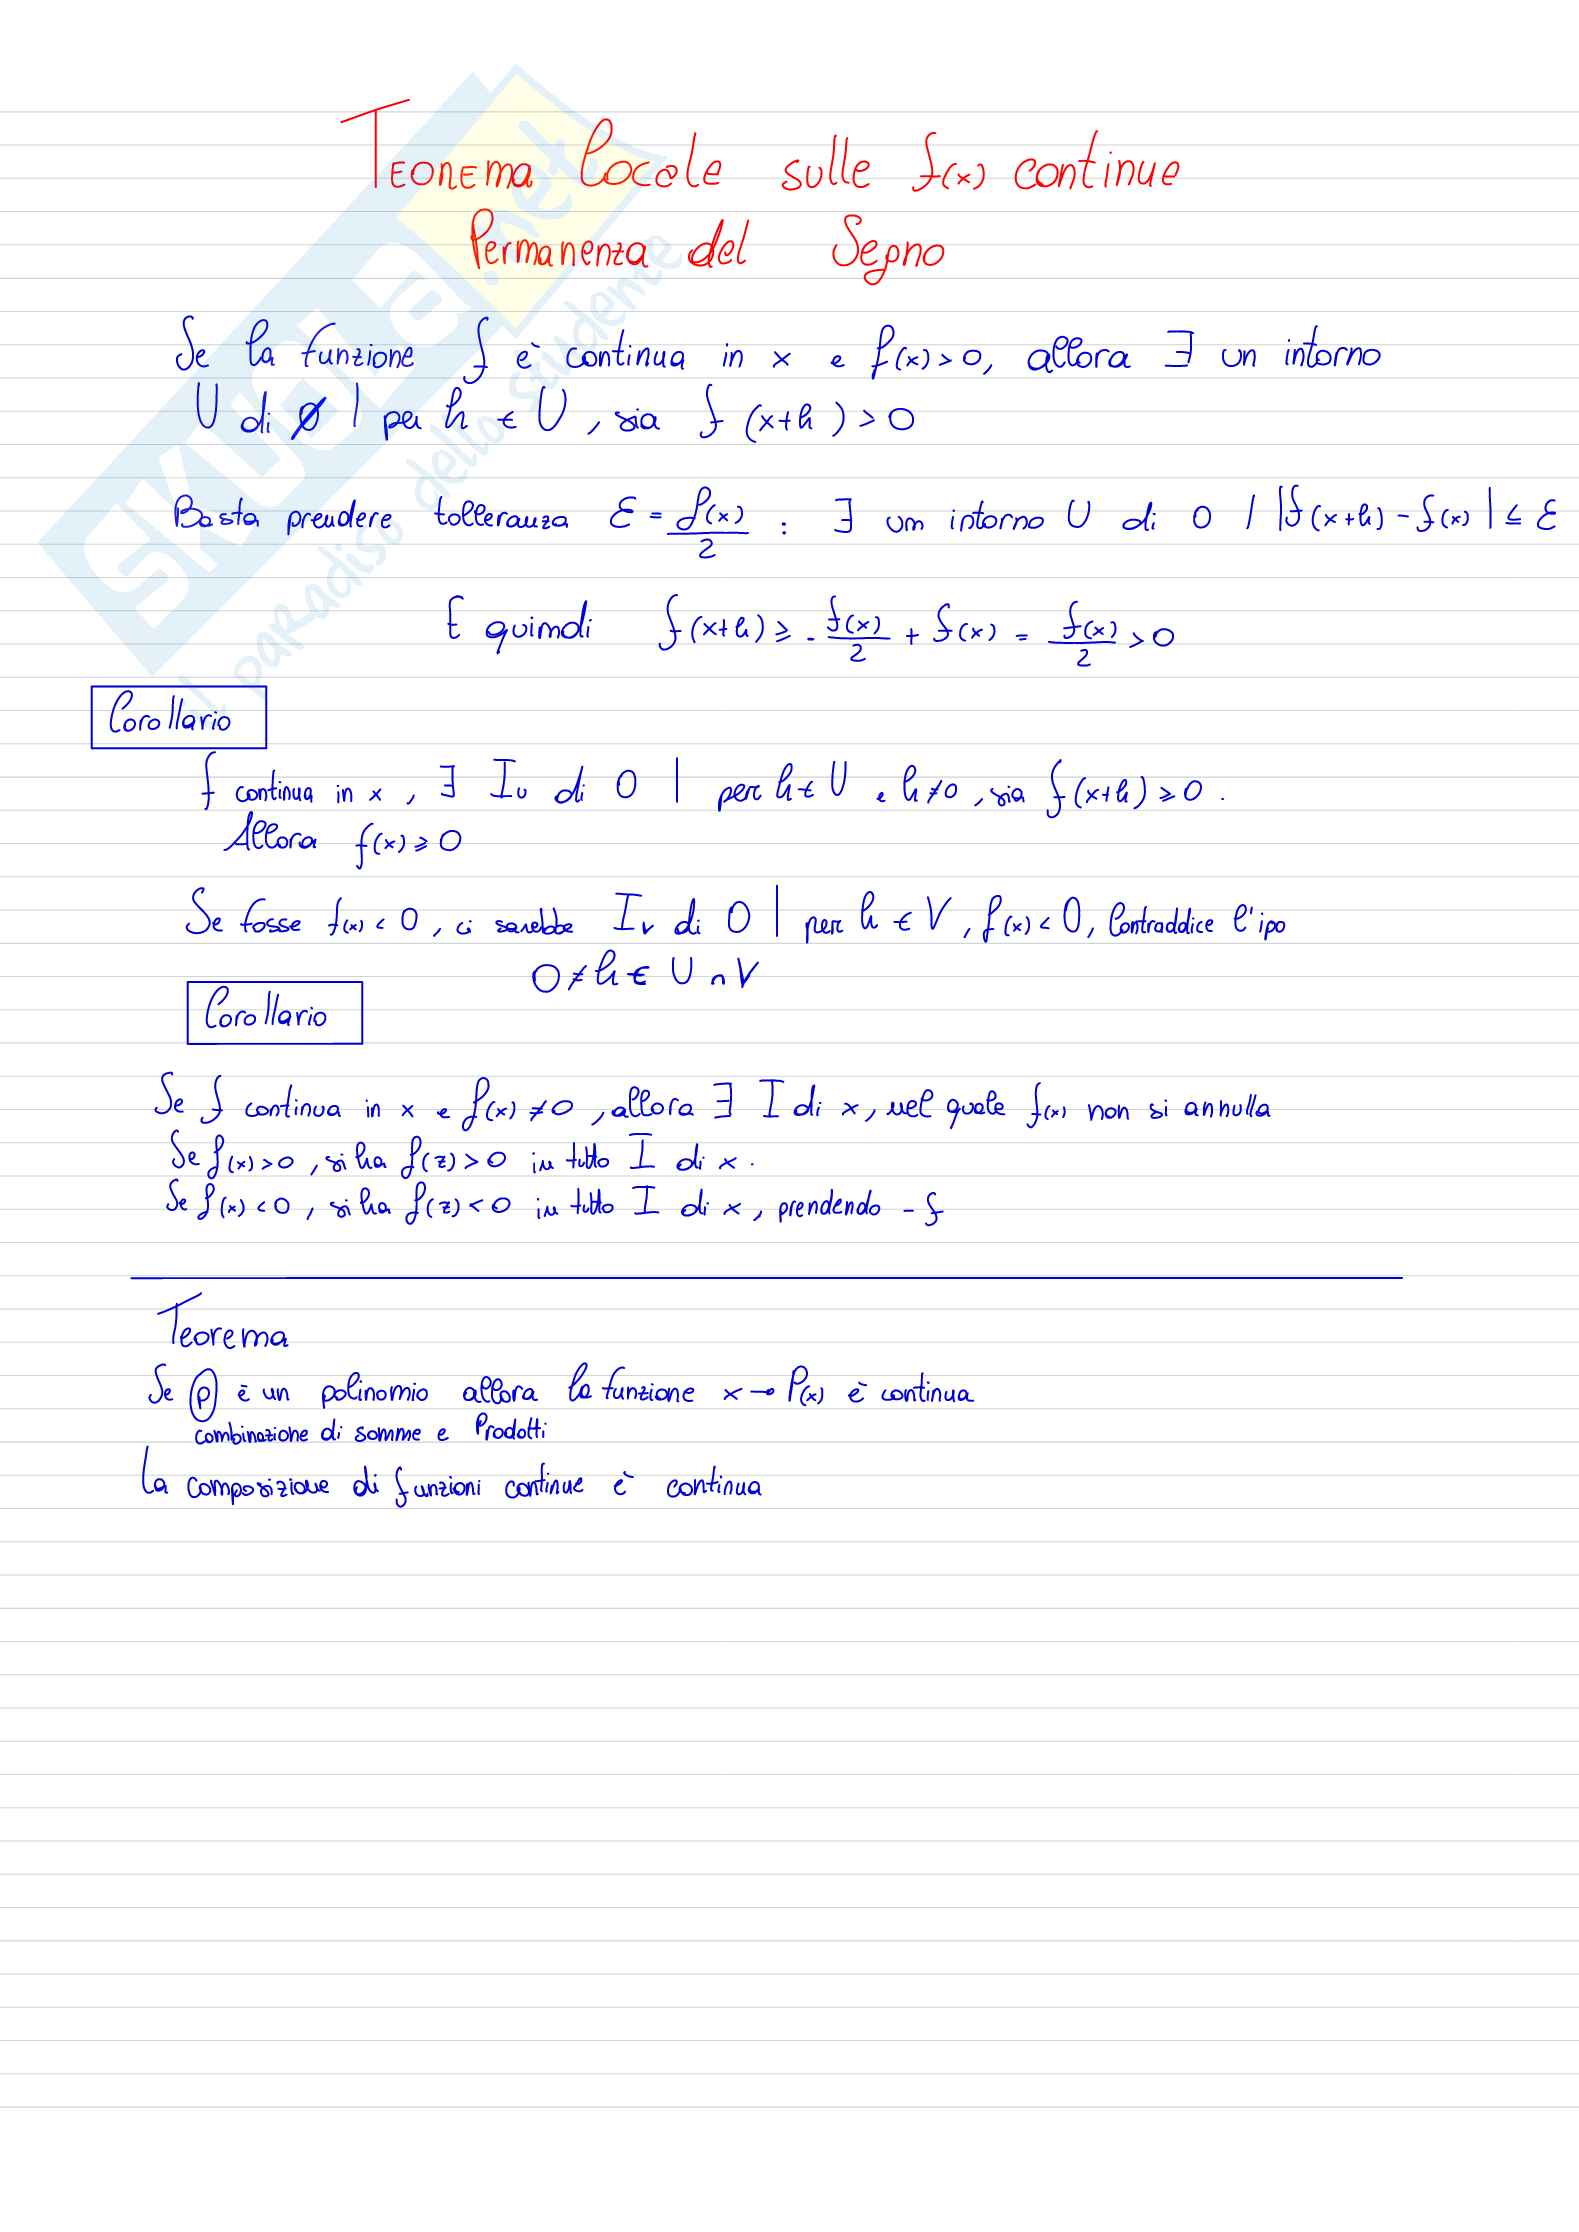 Teorema locale sulle f(x) continue
Permanenza del Segno
Se la funzione f è continua in x e f(x) > 0, allora ∃ un intorno
U di 0 | per h ∈ U, sia f(x+h) > 0
Basta prendere tolleranza ε = f(x)/2 : ∃ un intorno U di 0 / |f(x+h) - f(x)| ≤ ε
E quindi f(x+h) ≥ - f(x)/2 + f(x) = f(x)/2 > 0
Corollario
f continua in x, ∃ Iᵤ di 0 | per h ∈ U e h ≠ 0, sia f(x+h) ≥ 0.
Allora f(x) ≥ 0
Se fosse f(x) < 0, ci sarebbe Iᵥ di 0 | per h ∈ V, f(x) < 0, Contraddice l'ipo
0 ≠ h ∈ U ∩ V
Corollario
Se f continua in x e f(x) ≠ 0, allora ∃ I di x, nel quale f(x) non si annulla
Se f(x) > 0, si ha f(z) > 0 in tutto I di x.
Se f(x) < 0, si ha f(z) < 0 in tutto I di x, prendendo - f
Teorema
Se p è un polinomio allora la funzione x → P(x) è continua
combinazione di somme e Prodotti
La composizione di funzioni continue è continua
SKUOLA.net
il paradiso dello studente